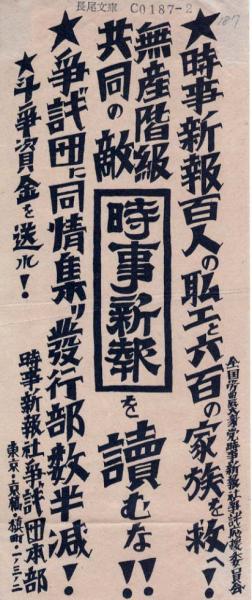 長尾文庫 C0187-2
187
★時事新報百人の職工と六百の家族を救へ!
全国労農大衆党時事新報社争議応援委員会
無産階級
共同の敵
時事新報
を讀むな!!
★爭議団に同情集り發行部数半減!
★斗爭資金を送れ!
時事新報社爭議団本部
東京・京橋・槙町・一ノ三ノ二